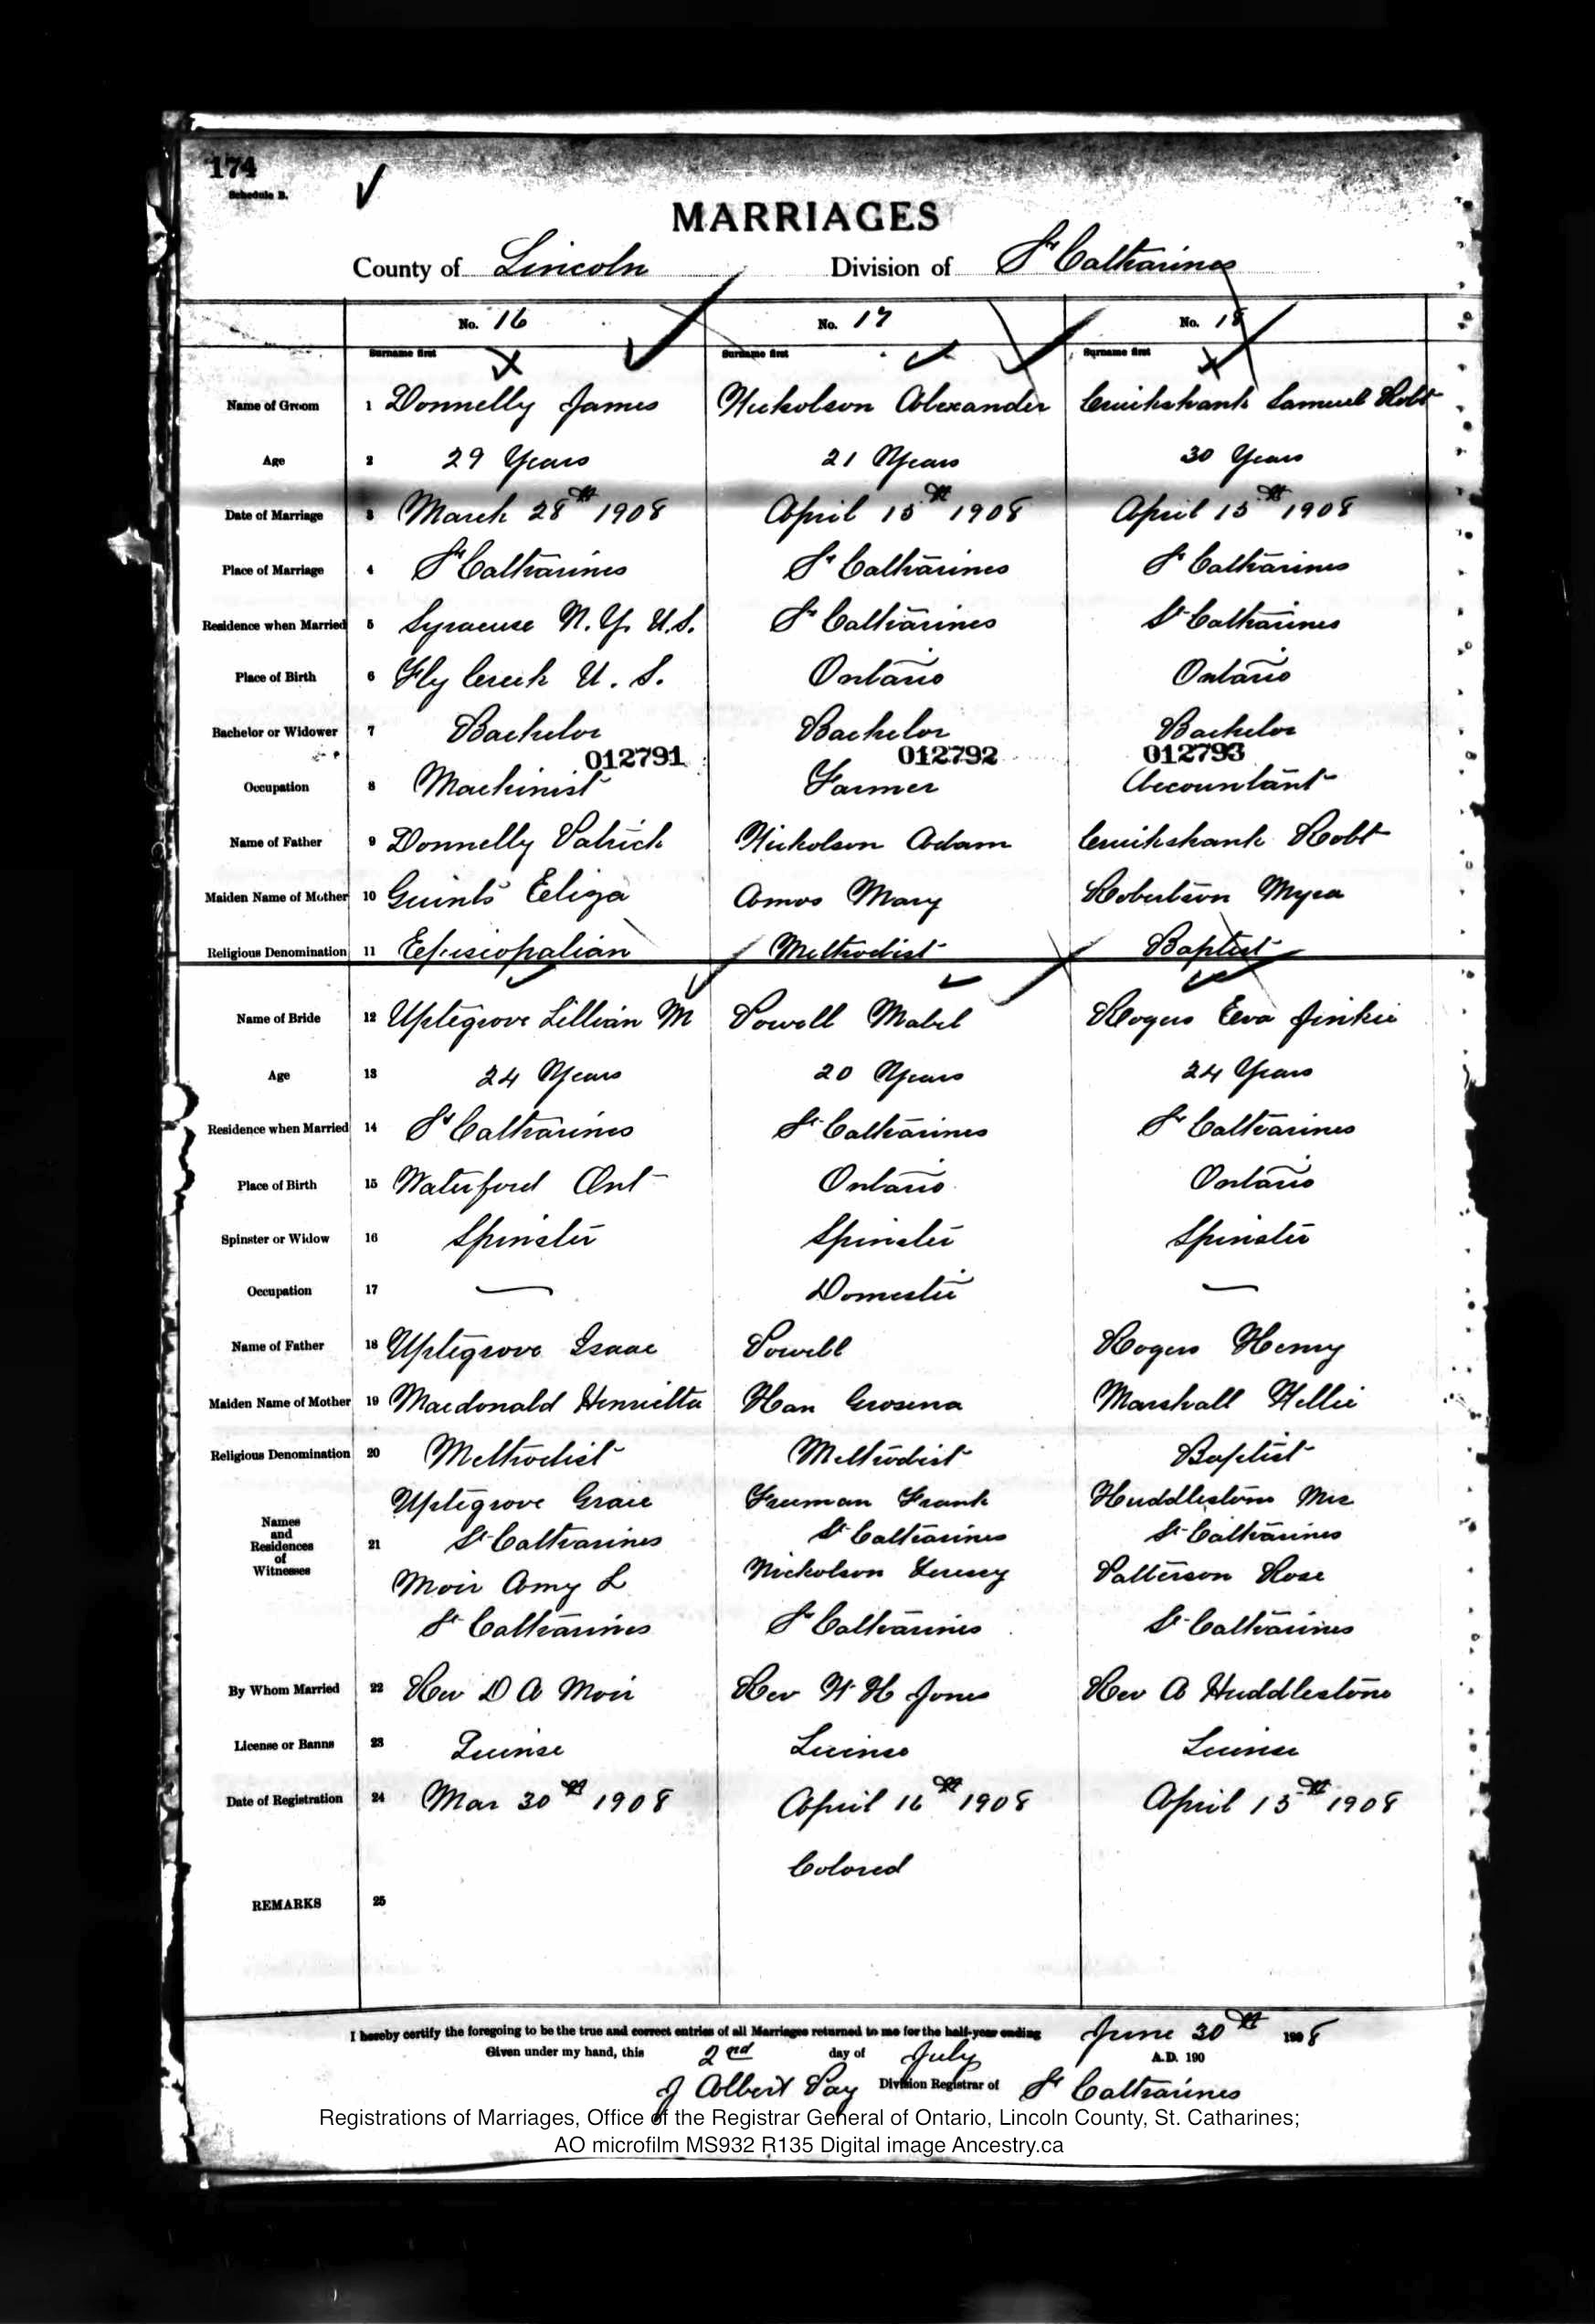 174
Schedule B.
MARRIAGES
County of Lincoln Division of St Catharines
No. 16 No. 17 No. 18
Surname first Surname first Surname first
Name of Groom 1 Donnelly James Nicholson Alexander Cruikshank Samuel Robt
Age 2 29 Years 21 Years 30 Years
Date of Marriage 3 March 28th 1908 April 15th 1908 April 15th 1908
Place of Marriage 4 St Catharines St Catharines St Catharines
Residence when Married 5 Syracuse N.Y. U.S. St Catharines St Catharines
Place of Birth 6 Fly Creek U. S. Ontario Ontario
Bachelor or Widower 7 Bachelor Bachelor Bachelor
012791 012792 012793
Occupation 8 Machinist Farmer Accountant
Name of Father 9 Donnelly Patrick Nicholson Adam Cruikshank Robt
Maiden Name of Mother 10 Eliza Amos Mary Robertson Myra
Religious Denomination 11 Episcopalian Methodist Baptist
Name of Bride 12 Uptegrove Lillian M Powell Mabel Rogers Eva Jinkie
Age 13 24 Years 20 Years 24 Years
Residence when Married 14 St Catharines St Catharines St Catharines
Place of Birth 15 Waterford Ont Ontario Ontario
Spinster or Widow 16 Spinster Spinster Spinster
Occupation 17 — Domestic —
Name of Father 18 Uptegrove Isaac Powell Rogers Henry
Maiden Name of Mother 19 Macdonald Henrietta Han Marshall Nellie
Religious Denomination 20 Methodist Methodist Baptist
Names
and
Residences
of
Witnesses
21
Uptegrove Grace Freeman Frank Huddlestone Mrs
St Catharines St Catharines St Catharines
Moir Amy L Nicholson Patterson Rose
St Catharines St Catharines St Catharines
By Whom Married 22 Rev D A Moir Rev W H Jones Rev A Huddlestone
License or Banns 23 License License License
Date of Registration 24 Mar 30th 1908 April 16th 1908 April 15th 1908
Colored
REMARKS 25
I hereby certify the foregoing to be the true and correct entries of all Marriages returned to me for the half-year ending June 30th 1908
Given under my hand, this 2nd day of July A.D. 190
J Albert Pay Division Registrar of St Catharines
Registrations of Marriages, Office of the Registrar General of Ontario, Lincoln County, St. Catharines;
AO microfilm MS932 R135 Digital image Ancestry.ca